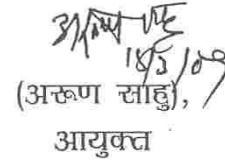 18/5/09
(अरूण साहु),
आयुक्त